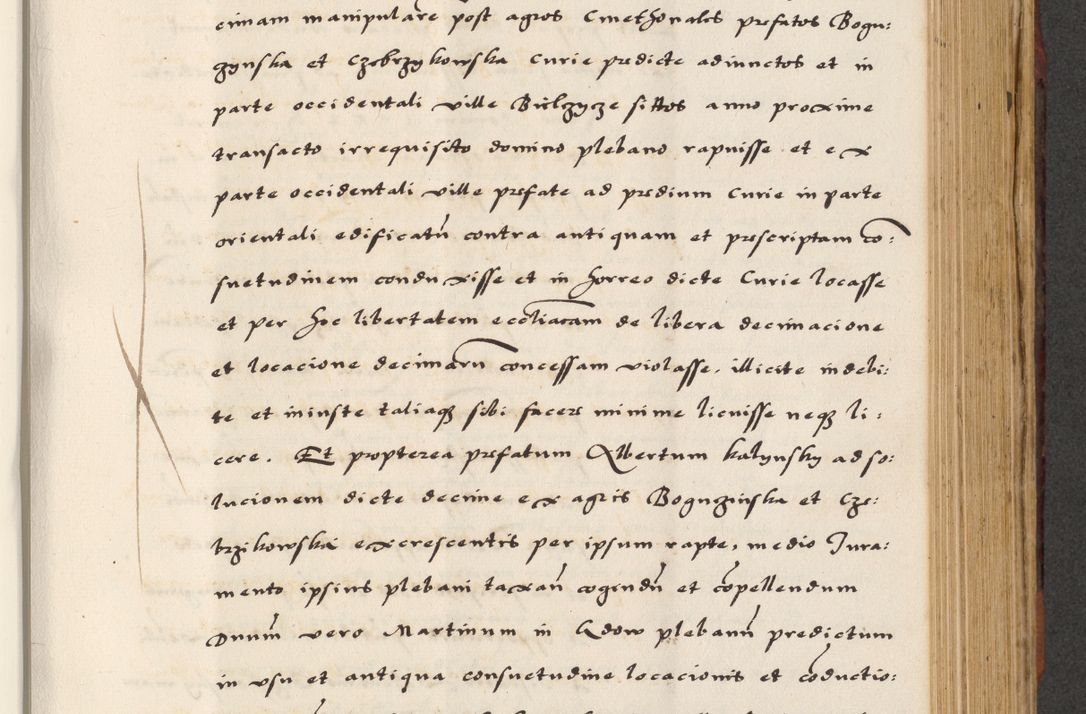 cimam manipulare post agros Cmethonales prefatos Bogu:
zynska et Czebrzykowska Curie predicte adiunctos et in
parte occidentali ville Bielczycze sittos anno proxime
transacto irrequisito domino plebano rapuisse et ex
parte occidentali ville prefate ad predium Curie in parte
orientali edificatũ contra antiquam et prescriptam co:
suetudinem conduxisse et in horreo dicte Curie locasse
et per hoc libertatem eccliacam de libera decimacione
et locacione decimarũ concessam violasse, illicite indebi:
te et iniuste taliaqȝ sibi facere minime licuisse neqȝ li:
cere. Et propterea prefatum Albertum kalynsky ad so:
lucionem dicte decime ex agris Boguzinska et Cze:
brzikowskai excrescentis per ipsum rapte, medio Iura:
mento ipsius plebani taxañ cogendũ et cõpellendum
Dnum̃ vero Martinum in Gdow plebanũ predictum
in vsu et antiqua consuetudine locacionis et cõductio: